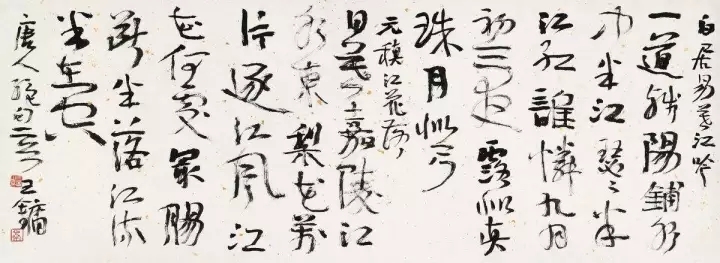 白居易暮江吟
一道残陽鋪水
中半江瑟々半
江紅誰憐九月
初三夜露似真
珠月似弓
元稹江花落
日暮嘉陵江
水東梨花萬
片逐江風江
花何處最腸
斷半落江流
半在空
唐人絕句二首 王鏞